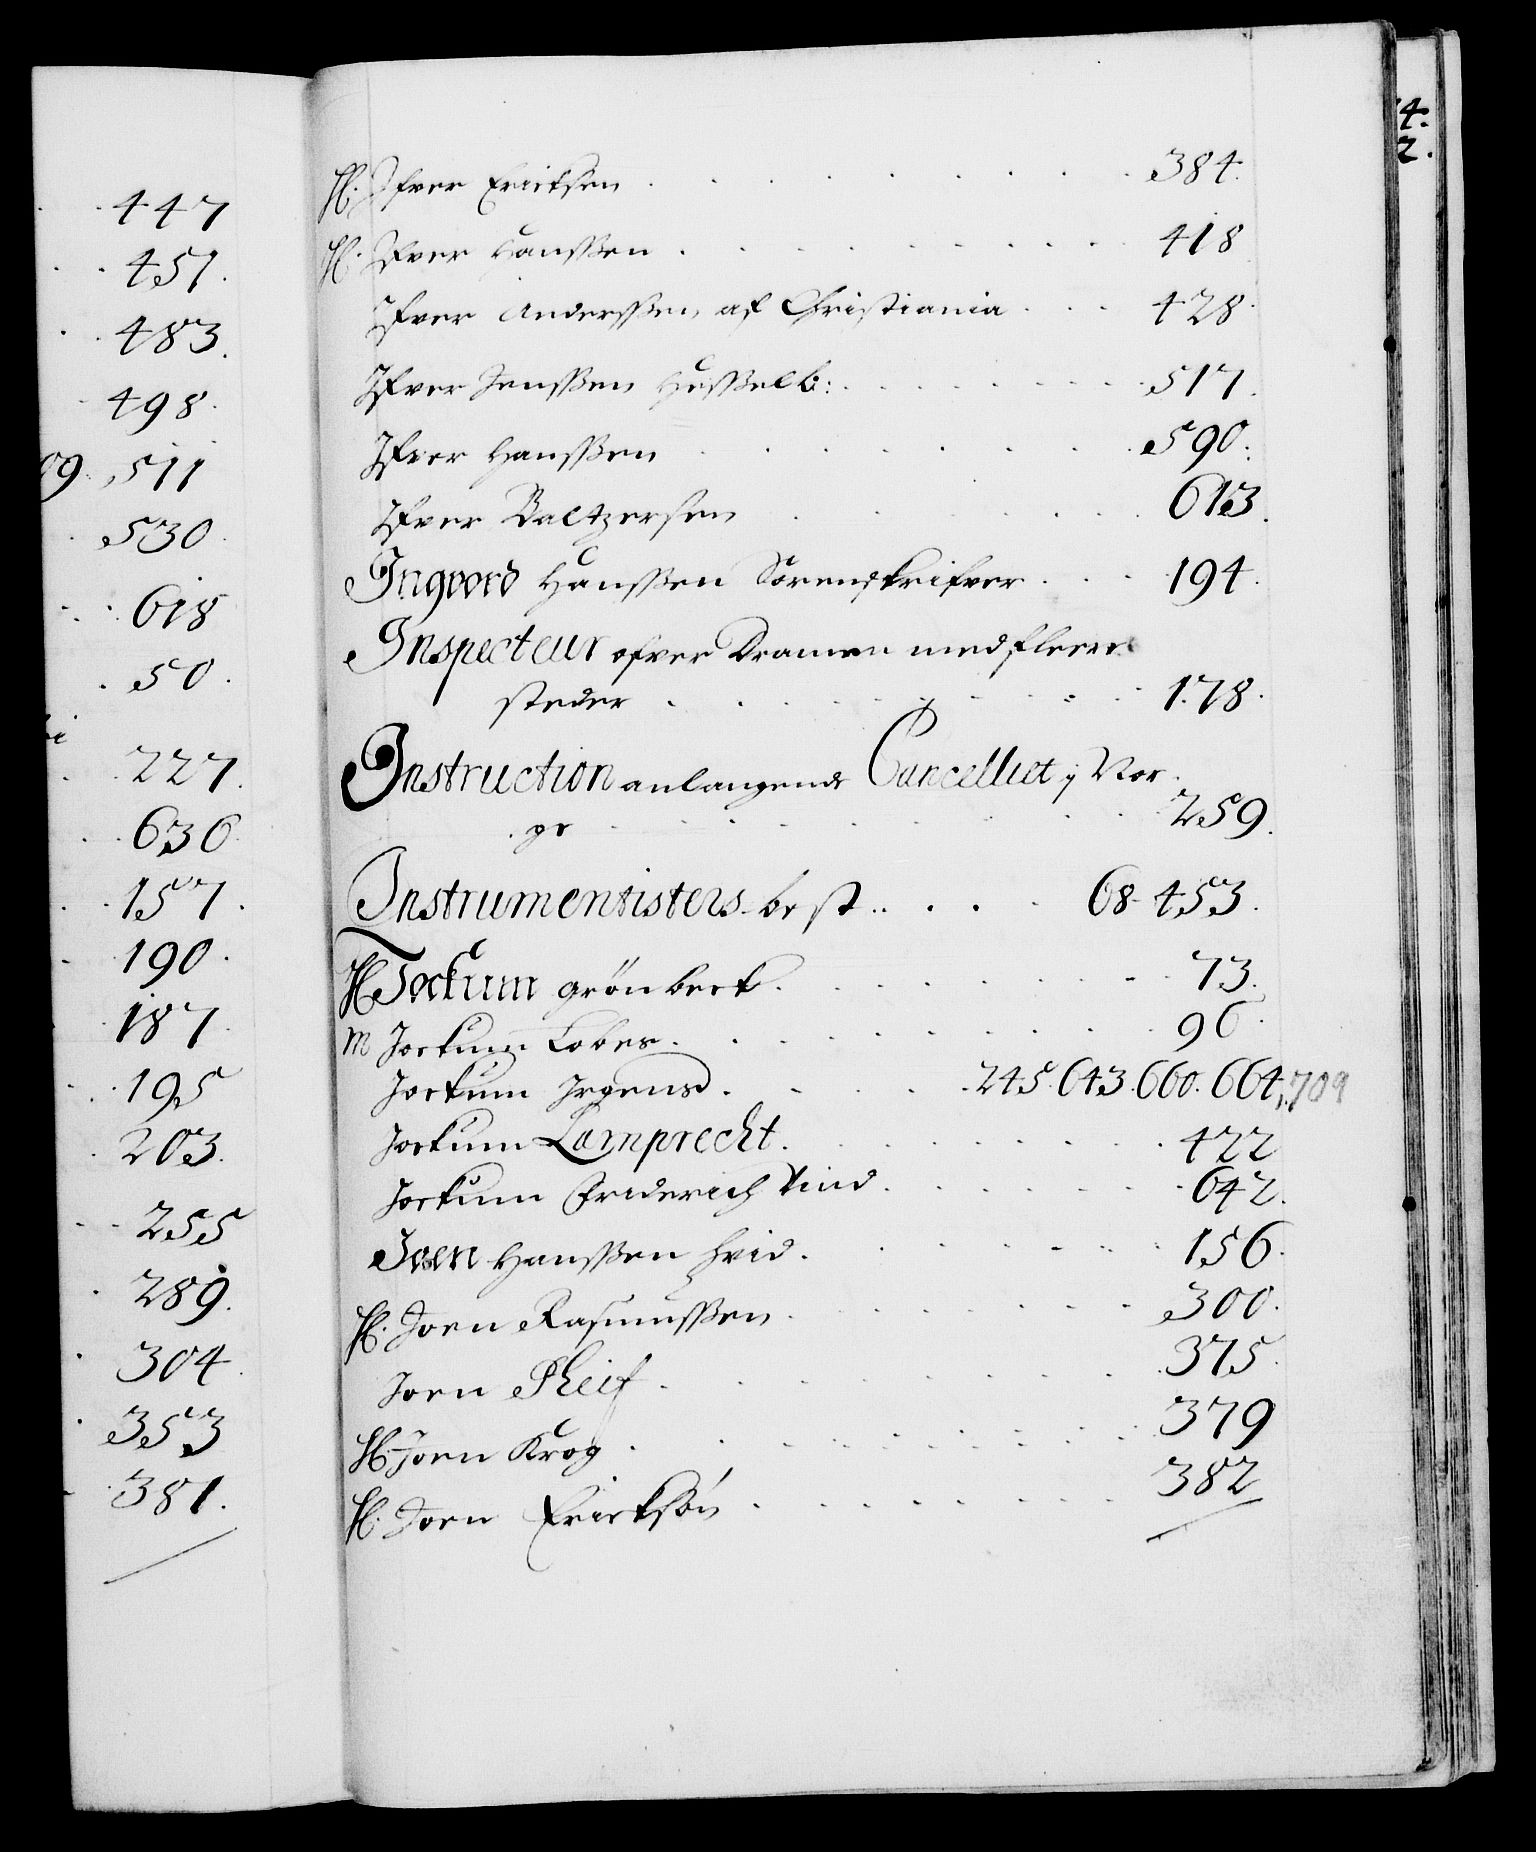 447
451.
483.
498.
09. 511
530.
618
50.
227.
636.
157.
190.
187.
195
203.
255
289.
304.
353
381.
H. Ifver Ericksen . . . 384.
H. Ifver Hanssen . . . 418
Ifver Anderssen af Christiania . . . 428.
Ifver Jenssen Hesselb: . . . 517.
Ifver Hanssen . . . 590.
Ifver Baltzersen . . . 613.
Ingvord Hanssen Sorenskrifver . . . 194.
Inspecteur ofver Dramen med fleere
steder . . . 178.
Instruction anlangende Cancelliet i Nor-
ge . . . 259.
Instrumentisters best. . . . 68. 453.
H Jockum Grönbeck . . . 73.
M Jockum Lobes . . . 96.
Jockum Irgens . . . 245. 643. 660. 664, 709
Jockum Lamprecht . . . 422
Jockum Friderich Vind . . . 642.
Joen Hanssen Hvid . . . 156.
H. Joen Rasmussen . . . 300.
Joen Pheif . . . 375.
H. Joen Krog . . . 379
H. Joen Ericksøn . . . 382
4.
2.